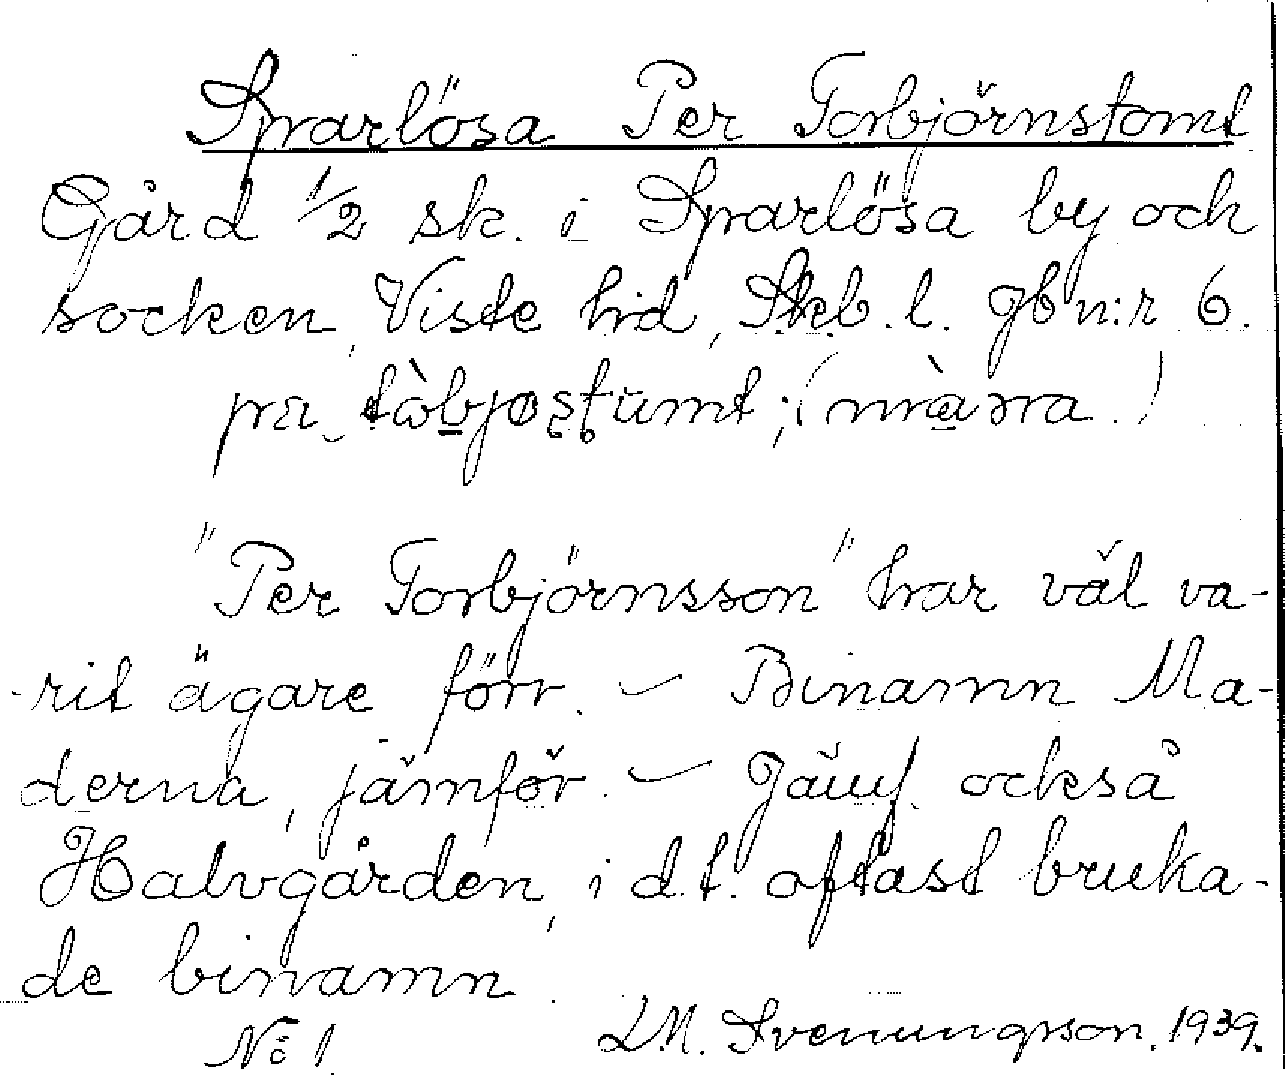 Sparlösa Per Torbjörnstomt
Gård 1/2 sk. i Sparlösa by och
socken, Viste hd, Skb. l. gb n:r 6.
"Per Torbjörnsson" har väl va-
rit ägare förr. – Binamn Ma-
derna, jämför. – Jämf. också
Halvgården, i d.t. oftast bruka-
de binamn.
No 1. L.M. Svenungsson. 1939.